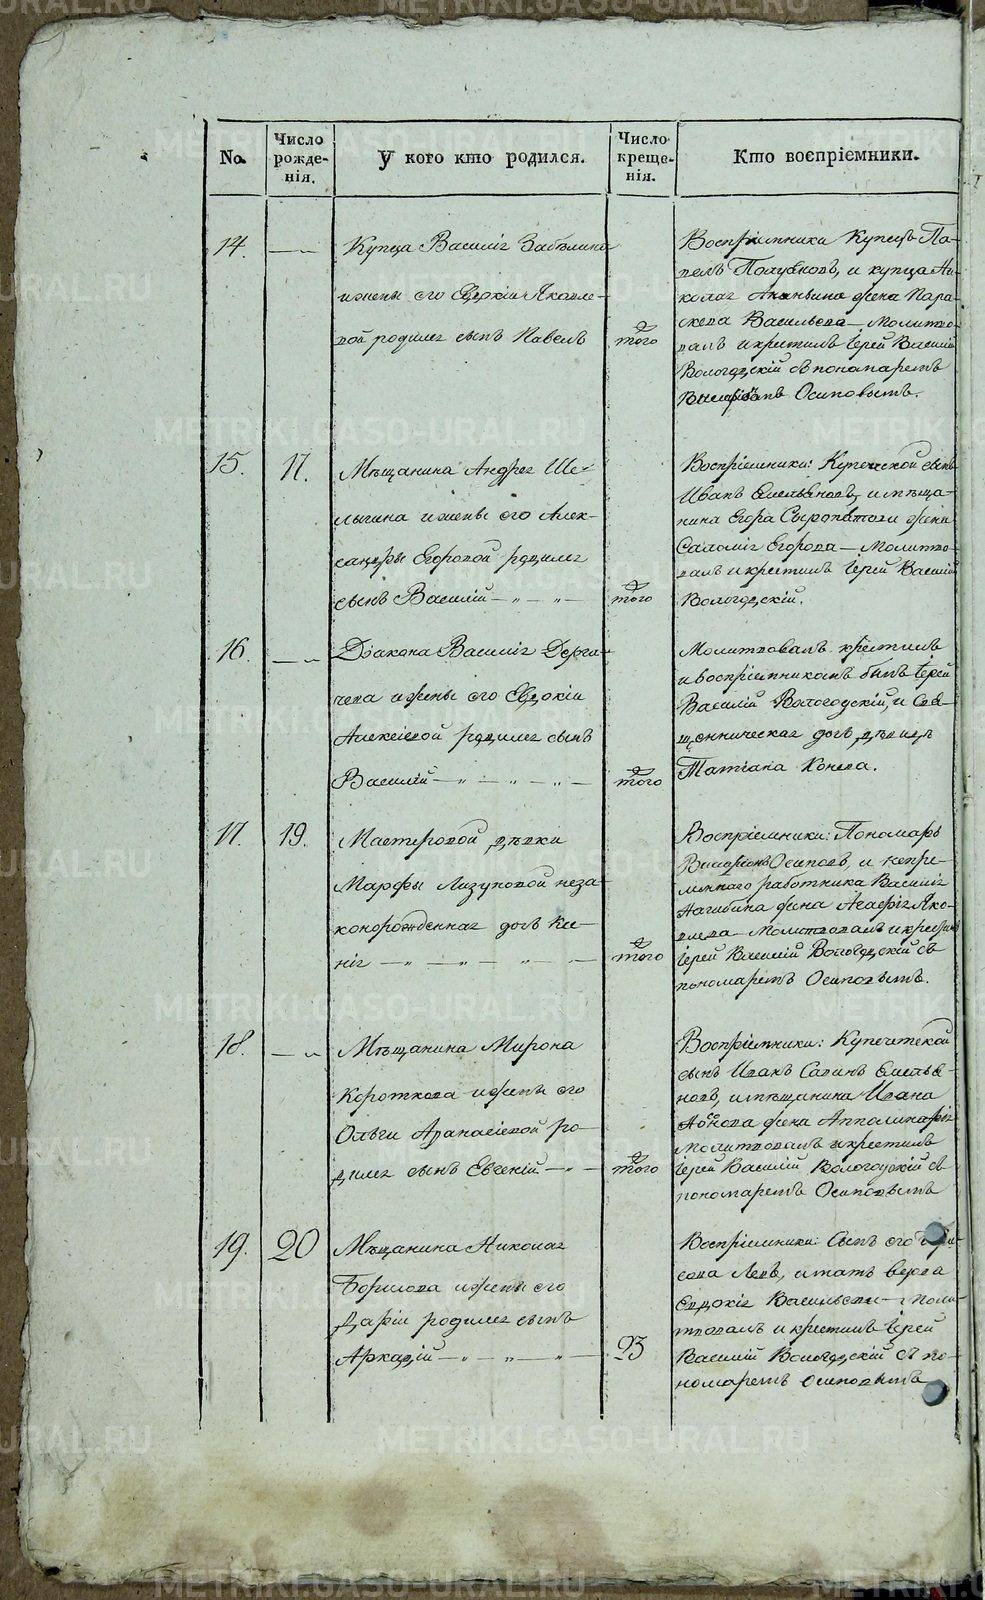 No.
Число рожденія.
У кого кто родился.
Число крещенія.
Кто воспріемники.
14.
Купца Василія Забѣлина
и жены его Евдокіи Яковле-
вой родился сынъ Павелъ
того
Воспріемники Купецъ Па-
велъ Полуяновъ, и купца Ни-
колая Ананьина жена Пара-
скева Васильева — Молитво-
валъ и крестилъ Іерей Василій
Вологодскій съ пономаремъ
Осиповымъ.
15.
17.
Мѣщанина Андрея Ше-
лыгина и жены его Алек-
сандры Егоровой родился
сынъ Василій
того
Воспріемники: Купеческой сынъ
Иванъ Емельяновъ, и мѣща-
нина Егора Сыропятова жена
Саломія Егорова — Молитво-
валъ и крестилъ Іерей Василій
Вологодскій.
16.
Діакона Василія Дерга-
чева и жены его Евдокіи
Алексіевой родился сынъ
Василій
того
Молитвовалъ крестилъ
и воспріемникомъ былъ Іерей
Василій Вологодскій, и Свя-
щенническая дочь, дѣвица
Татіана Конева.
17.
19.
Мастеровой дѣвки
Марфы Лизуновой неза-
конорожденная дочь Ксе-
нія
того
Воспріемники: Пономарь
Осиповъ, и непре-
мѣннаго работника Василія
Нагибина жена Агафія Яко-
влева — Молитвовалъ и крестилъ
Іерей Василій Вологодскій съ
пономаремъ Осиповымъ.
18.
Мѣщанина Мирона
Короткова и жены его
Ольги Афанасіевой ро-
дился сынъ Евгеній
того
Воспріемники: Купеческой
сынъ Иванъ Савинъ Емелья-
новъ, и мѣщанина Ивана
жена Апполинарія
Молитвовалъ и крестилъ
Іерей Василій Вологодскій съ
пономаремъ Осиповымъ
19.
20
Мѣщанина Николая
Борисова и жены его
Даріи родился сынъ
Аркадій
23
Воспріемники: Сынъ его Бори-
сова Левъ, и мать
Евдокія Васильева — Моли-
твовалъ и крестилъ Іерей
Василій Вологодскій съ по-
номаремъ Осиповымъ
METRIKI.GASO-URAL.RU